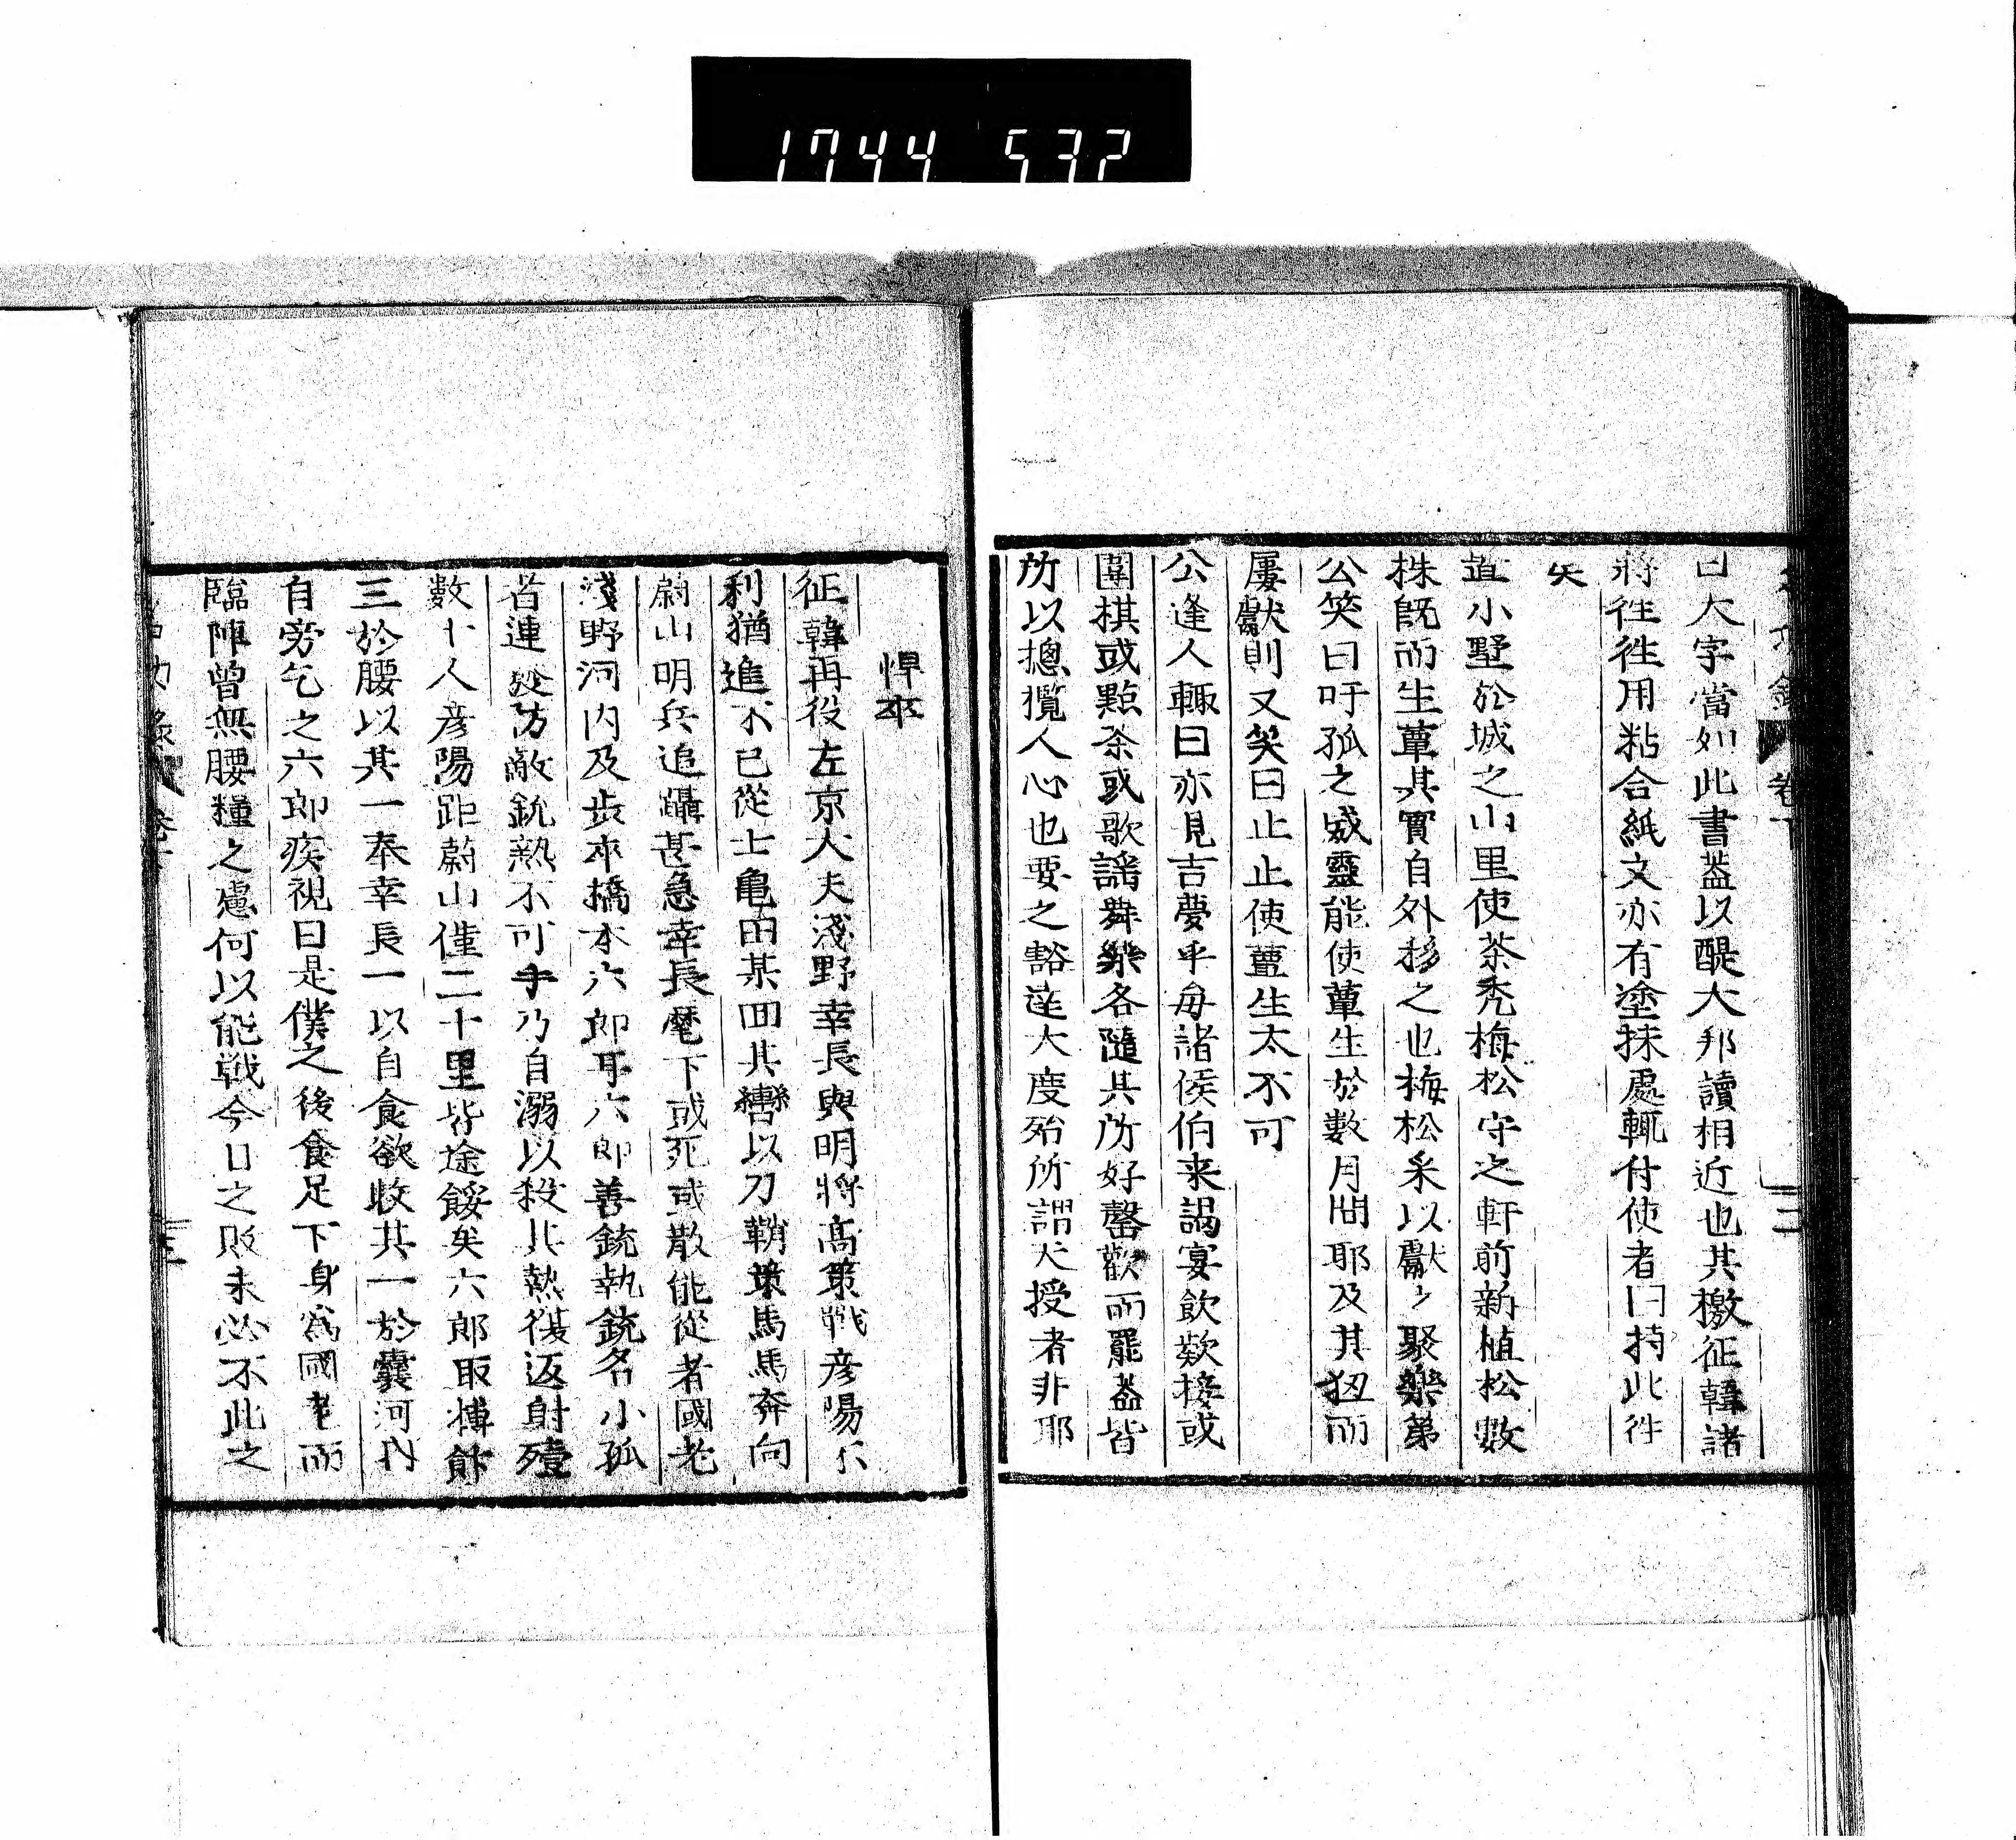 1744 532
曰大字當如此書蓋以醍大邦讀相近也其檄征韓諸
將徃徃用粘合紙文亦有塗抹處輒付使者曰持此徃
矣
置小墅於城之山里使茶禿梅松守之軒前新植松數
株既而生蕈其實自外移之也梅松采以獻々聚樂第
公笑曰吁孤之威靈能使蕈生於數月間耶及其狃而
屢獻則又笑曰止止使蕈生太不可
公逢人輒曰亦見吉夢乎每諸侯伯来謁宴飲款接或
圍棋或點茶或歌謡舞樂各隨其所好罄歡而罷蓋皆
所以摠攬人心也要之豁達大度殆所謂天授者非耶
悍卒
征韓再役左京大夫淺野幸長與明將高策戰彦陽不
利猶進不已從士亀田某回其轡以刀鞘策馬馬奔向
蔚山明兵追躡甚急幸長麾下或死或散能從者國老
淺野河内及步卒橋本六郎耳六郎善銃執銃名小狐
者連發防敵銃熱不可手乃自溺以殺其熱復返射殪
數十人彦陽距蔚山僅二十里皆途餒矣六郎取摶飯
三於腰以其一奉幸長一以自食欲收其一於囊河内
自旁乞之六郎疾視曰是僕之後食足下身爲國老而
臨陣曾無腰糧之慮何以能戰今日之敗未必不此之